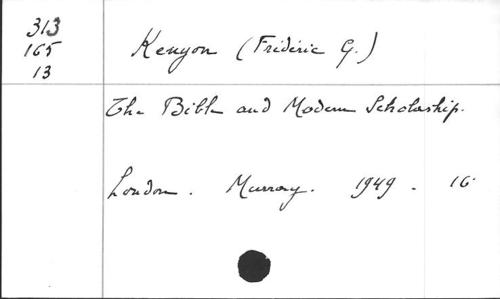 313
165
13
Kenyon (Fridéric G.)
The Bible and Modern Scholarship.
London. Murray. 1949. 16